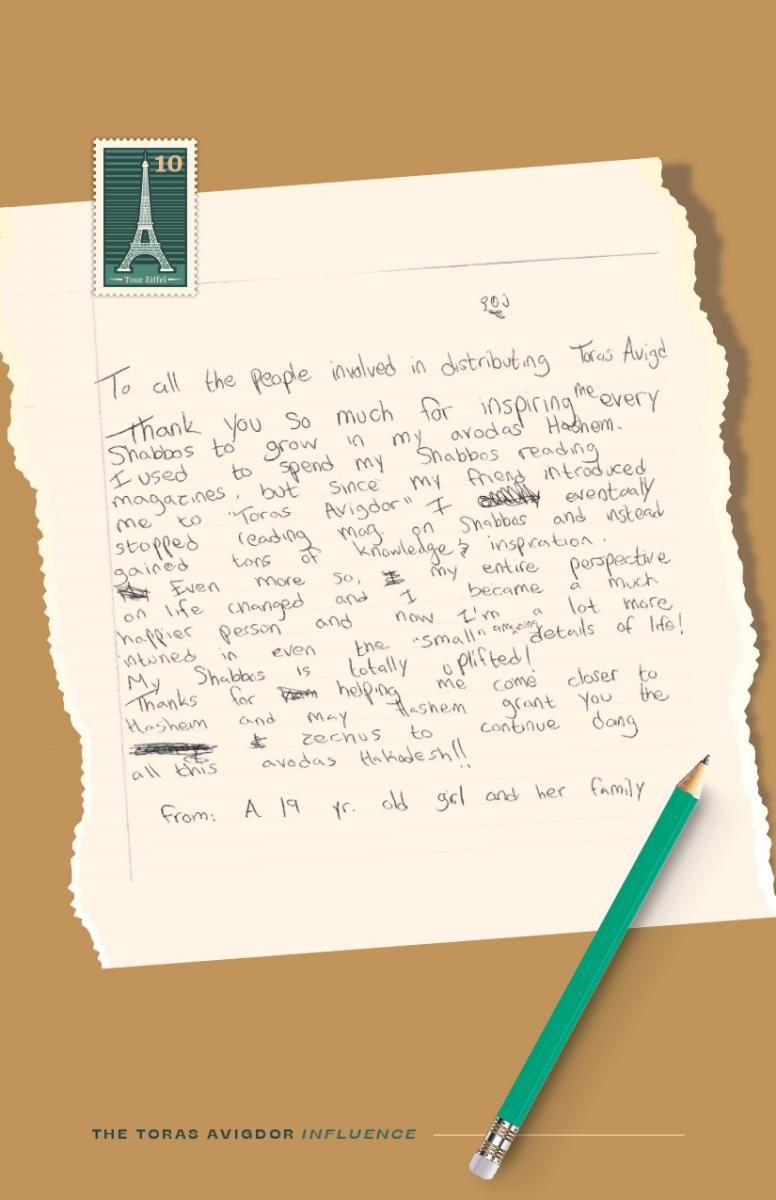 10
Tour Eiffel
To all the people involved in distributing Toras Avigd
Thank you so much for inspiring me every
Shabbos to grow in my avodas Hashem.
I used to spend my Shabbos reading
magazines, but since my friend introduced
me to "Toras Avigdor" I eventually
stopped reading mag. on Shabbos and instead
gained tons of knowledge & inspiration.
Even more so, my entire perspective
on life changed and I became a much
happier person and now I'm a lot more
intuned in even the "small" amazing details of life!
My Shabbos is totally uplifted!
Thanks for helping me come closer to
Hashem and may Hashem grant you the
zechus to continue doing
all this avodas Hakodesh!!
From: A 19 yr. old girl and her family
THE TORAS AVIGDOR INFLUENCE